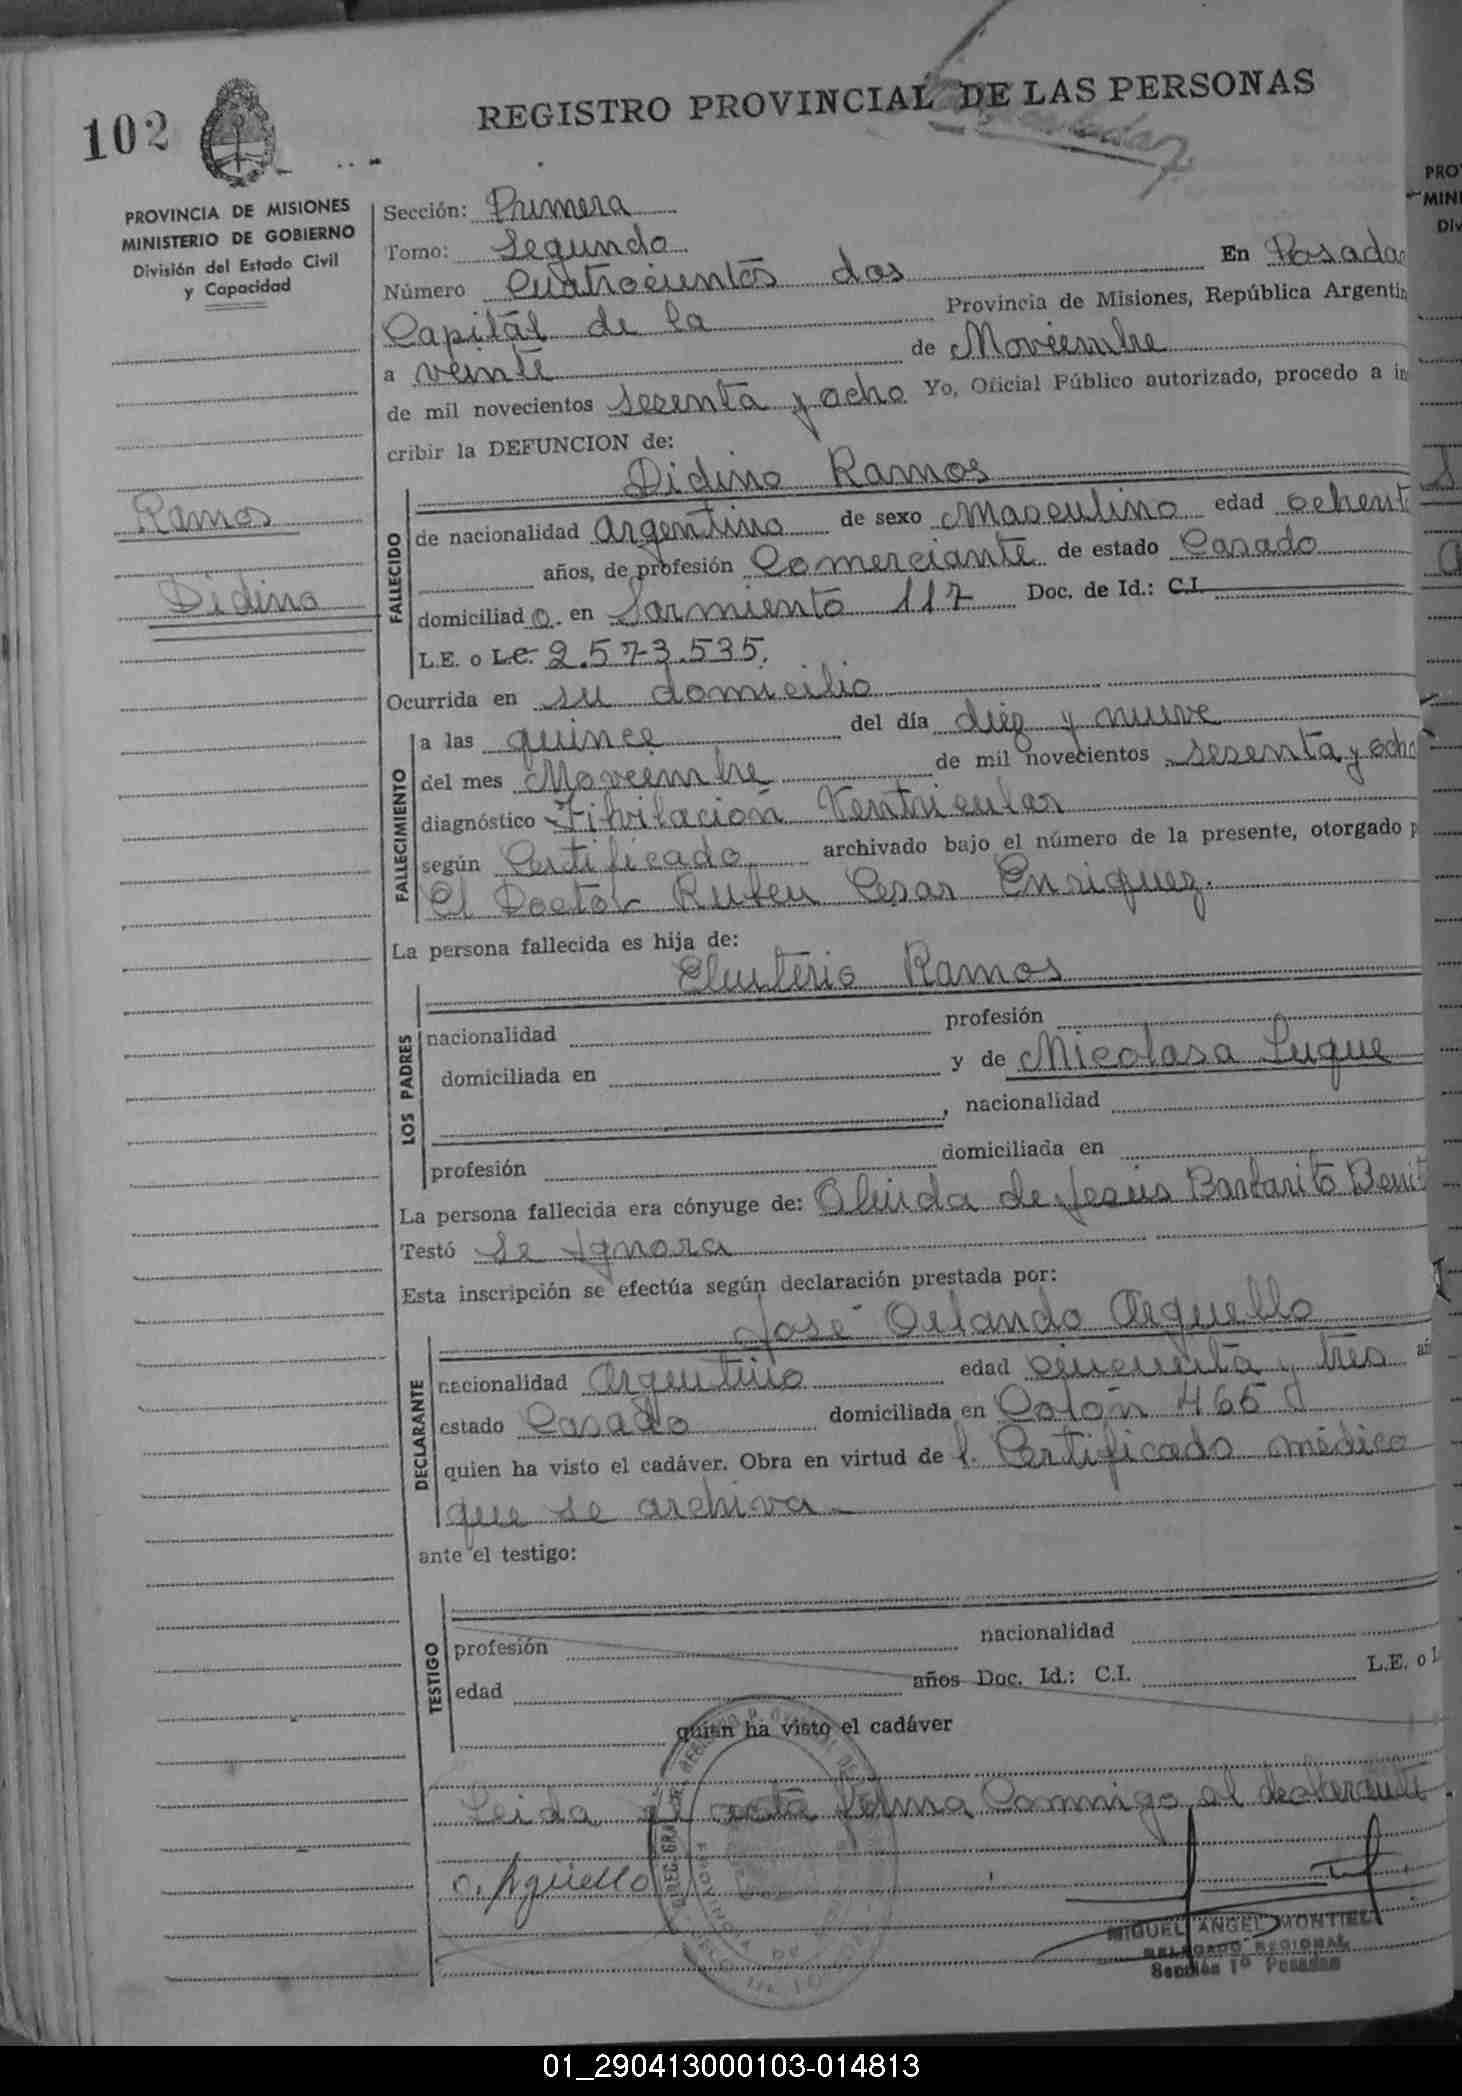 102
REGISTRO PROVINCIAL DE LAS PERSONAS
PROVINCIA DE MISIONES
MINISTERIO DE GOBIERNO
División del Estado Civil
y Capacidad
Ramos
Didino
Sección: Primera
Tomo: Segundo
Número Cuatrocientos dos En Posadas
Capital de la Provincia de Misiones, República Argentin
a veinte de Noviembre
de mil novecientos sesenta y ocho Yo, Oficial Público autorizado, procedo a in
cribir la DEFUNCION de:
Didino Ramos
FALLECIDO
de nacionalidad Argentino de sexo Masculino edad ochent
años, de profesión Comerciante de estado Casado
domiciliado en Sarmiento 117 Doc. de Id.: C.I.
L.E. o L.C. 2.573.535.
Ocurrida en su domicilio
FALLECIMIENTO
a las quince del día diez y nueve
del mes Noviembre de mil novecientos sesenta y ocho
diagnóstico Fibrilación Ventricular
según Certificado archivado bajo el número de la presente, otorgado p
El Doctor Ruben Cesar Enriquez.
La persona fallecida es hija de:
Eluterio Ramos
LOS PADRES
nacionalidad profesión
domiciliada en y de Nicolasa Luque
, nacionalidad
profesión domiciliada en
La persona fallecida era cónyuge de: de Jesús Benit
Testó se ignora
Esta inscripción se efectúa según declaración prestada por:
José Orlando Arguello
DECLARANTE
nacionalidad Argentino edad cincuenta y tres añ
estado Casado domiciliada en Colón 465
quien ha visto el cadáver. Obra en virtud de l. Certificado médico
que se archiva
ante el testigo:
TESTIGO
profesión nacionalidad
edad años Doc. Id.: C.I. L.E. o L
quien ha visto el cadáver
Leida el acta firma Conmigo el declarante.
O. Argüello
MIGUEL ANGEL MONTIEL
DELEGADO REGIONAL
Sección 1º Posadas
PRO
MINI
Div
01_290413000103-014813